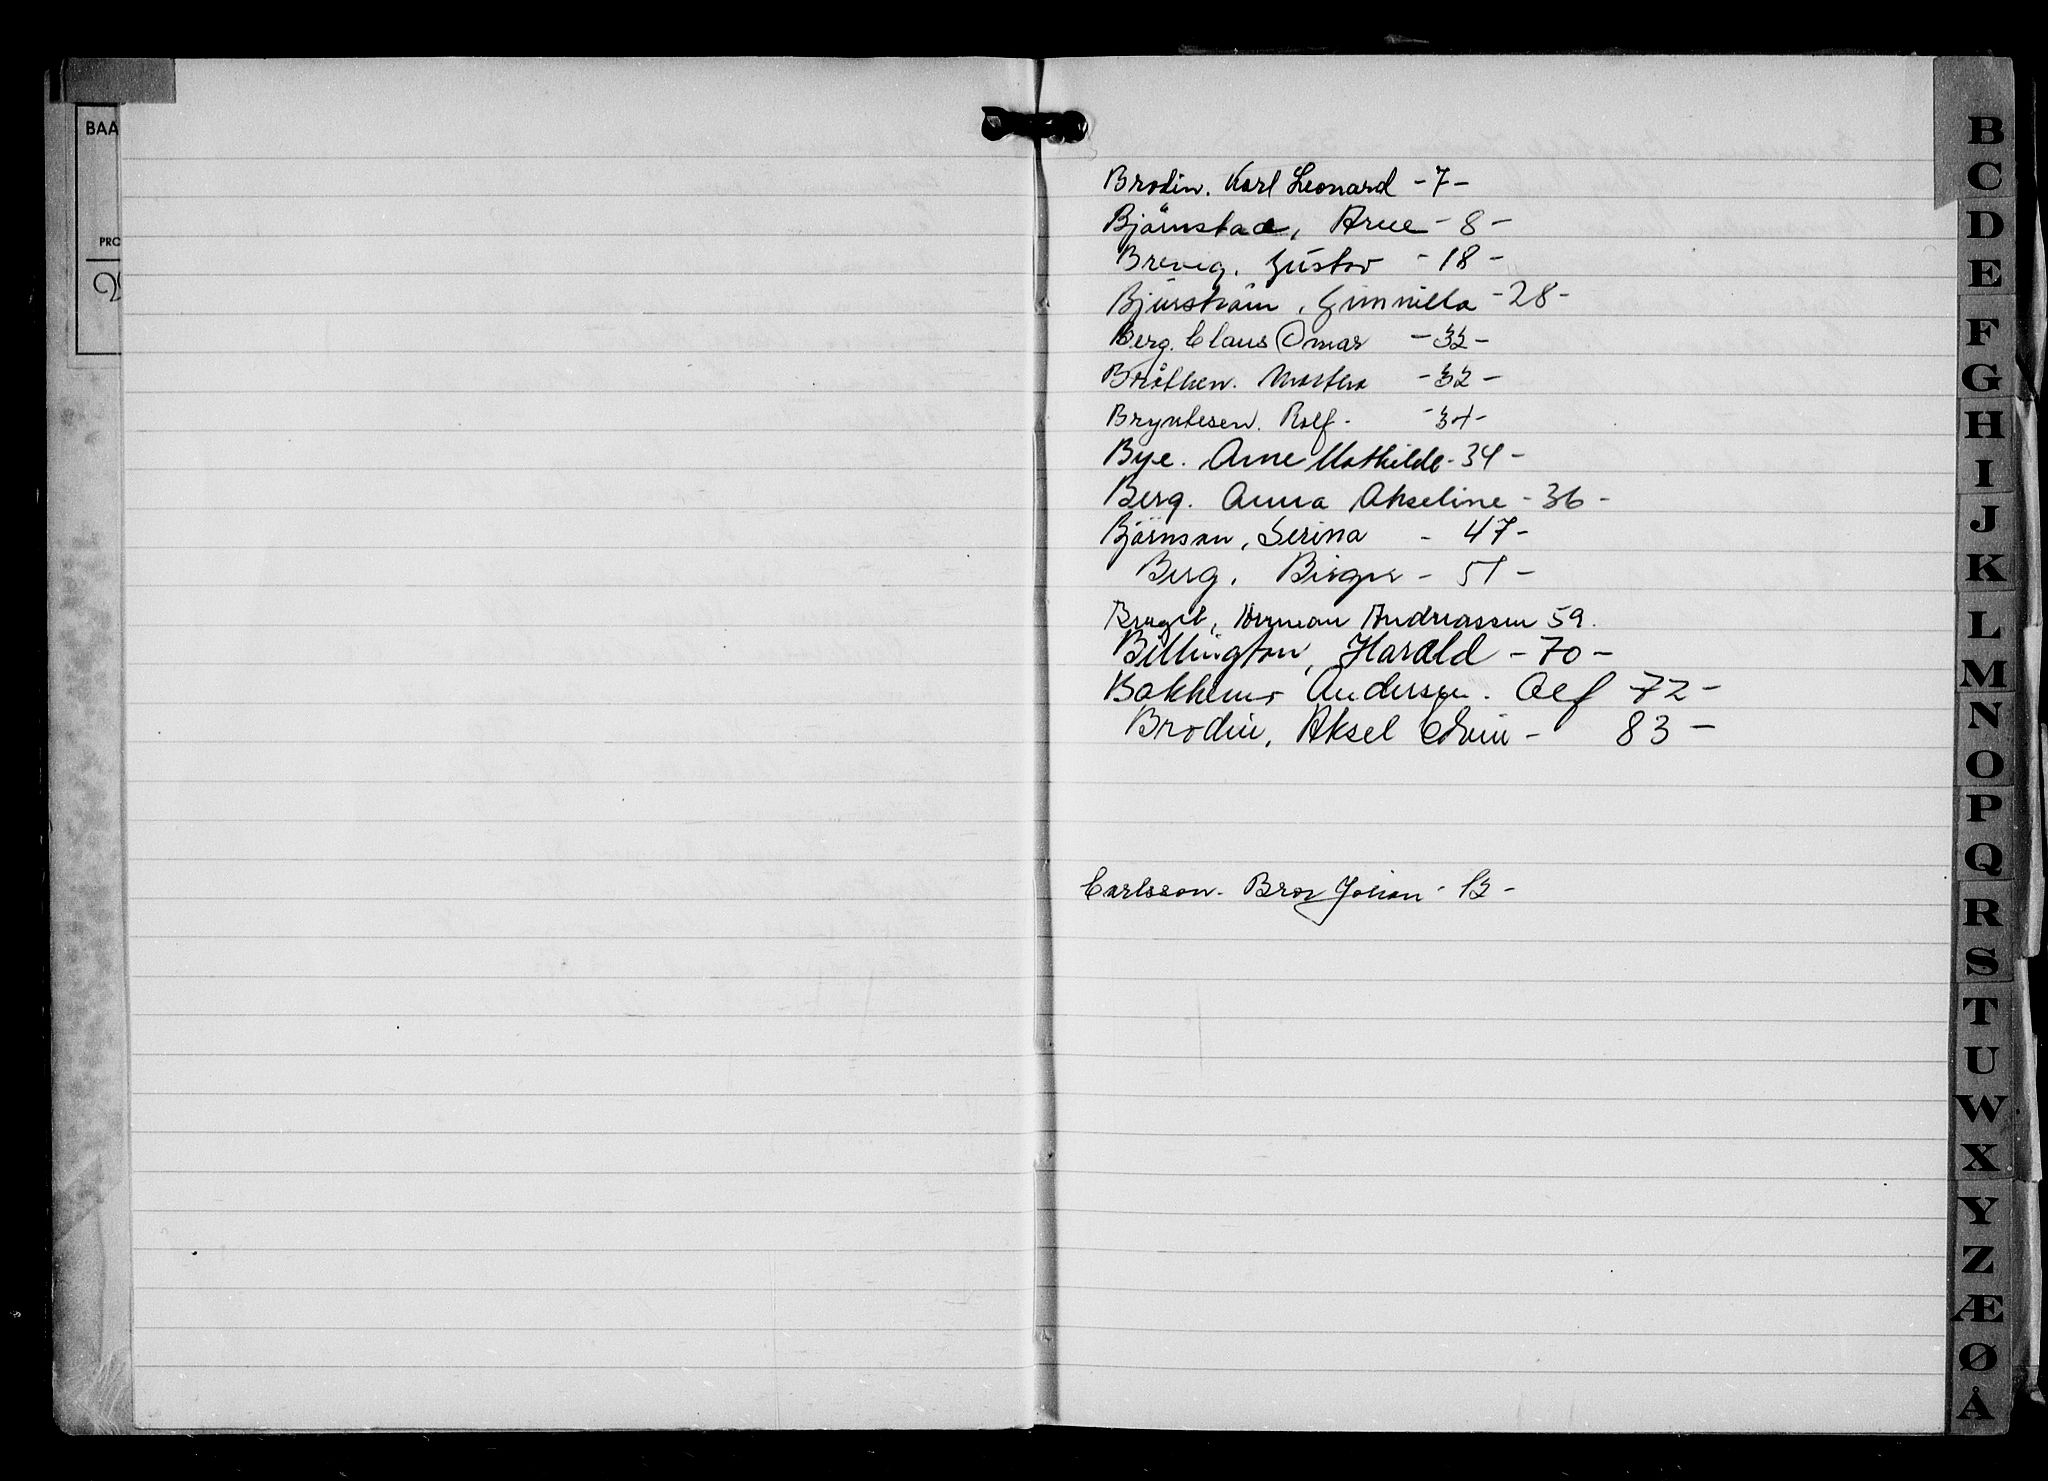 BAA
PRO
Brodin. Karl Leonard - 7 -
Björnstad, Arne - 8 -
Brevig. Gustav - 18 -
Björström, Gunnilla - 28 -
Berg. Claus Omar - 32 -
Bråthen. Martha - 32 -
Bryntesen. Rolf. - 34 -
Bye. Arne Mathilde - 34 -
Berg. Anna Akseline - 36 -
Björnson, Serina - 47 -
Berg, Birger - 51 -
Herman Andreassen 59.
Billington, Harald - 70 -
Andersen. 72 -
Brodin, Aksel Edvin - 83 -
Carlsson. Bror Johan - 13 -
B
C
D
E
F
G
H
I
J
K
L
M
N
O
P
Q
R
S
T
U
W
X
Y
Z
Æ
Ø
Å